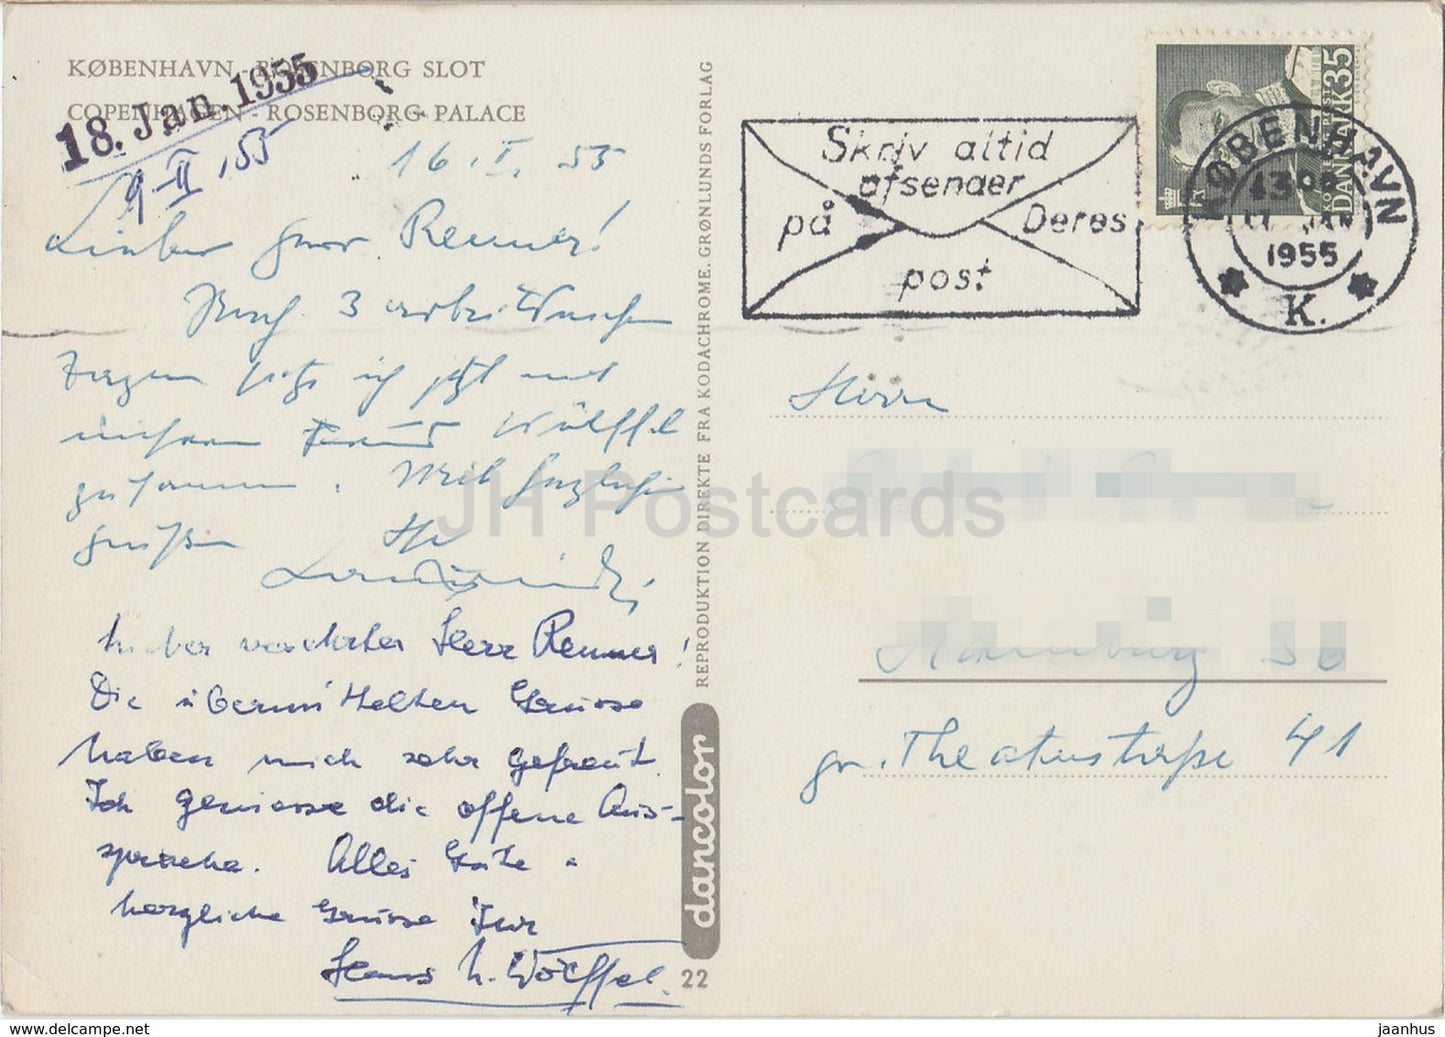 KØBENHAVN - ROSENBORG SLOT
COPENHAGEN - ROSENBORG PALACE
18. Jan. 1955
9-II.55
16.I.55
Lieber Herr Renner!
Nach 3 arbeitsreichen
Tagen sitze ich jetzt mit
unserem Freund Wülffel
zusammen. Mit herzlichen
Grüßen Ihr
Lieber verehrter Herr Renner!
Die übermittelten Grüsse
haben mich sehr gefreut.
Ich geniesse die offene Aus-
sprache. Alles Gute u.
herzliche Grüsse Ihr
Hans H. Wölffel.
REPRODUKTION DIREKTE FRA KODACHROME. GRØNLUNDS FORLAG
dancolor
22
Skriv altid
afsender
på Deres
post
DANMARK 35
KØBENHAVN
1955
K.
Herrn
Hamburg 36
gr. Theaterstraße 41
JH Postcards
www.delcampe.net
jaanhus